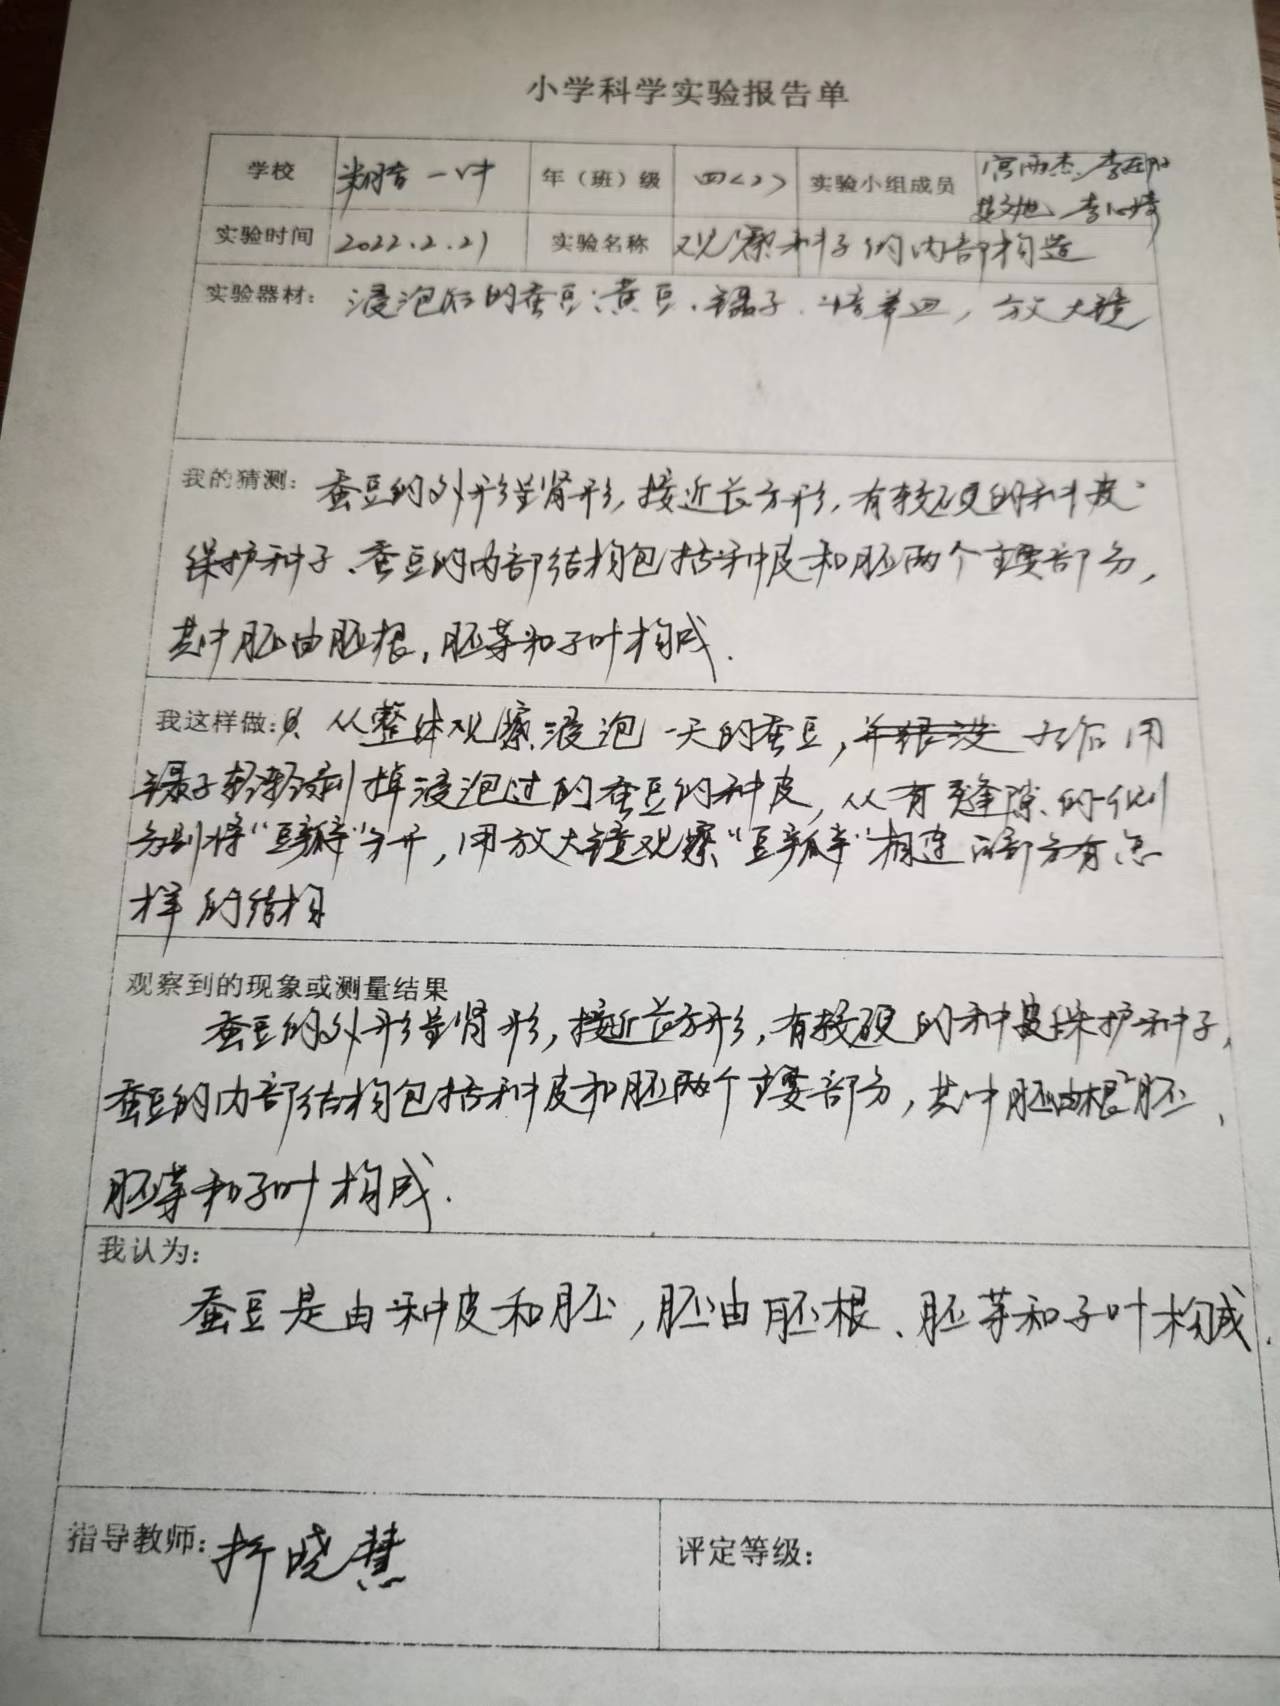 小学科学实验报告单
学校 一中 年（班）级 四<2> 实验小组成员
实验时间 2022.2.21 实验名称 观察种子的内部构造
实验器材： 浸泡后的蚕豆、黄豆、镊子、培养皿，放大镜
我的猜测： 蚕豆的外形呈肾形，接近长方形，有较硬的种皮
保护种子、蚕豆的内部结构包括种皮和胚两个主要部分，
其中胚由胚根，胚芽和子叶构成.
我这样做： 从整体观察浸泡一天的蚕豆， 用
镊子轻轻剥掉浸泡过的蚕豆的种皮，从有缝隙的一侧
分别将“豆瓣”分开，用放大镜观察“豆瓣”相连的部分有怎
样的结构
观察到的现象或测量结果
蚕豆的外形呈肾形，接近长方形，有较硬的种皮保护种子，
蚕豆的内部结构包括种皮和胚两个主要部分，其中胚由根胚、
胚芽和子叶构成.
我认为：
蚕豆是由种皮和胚，胚由胚根、胚芽和子叶构成.
指导教师： 折晓慧 评定等级：